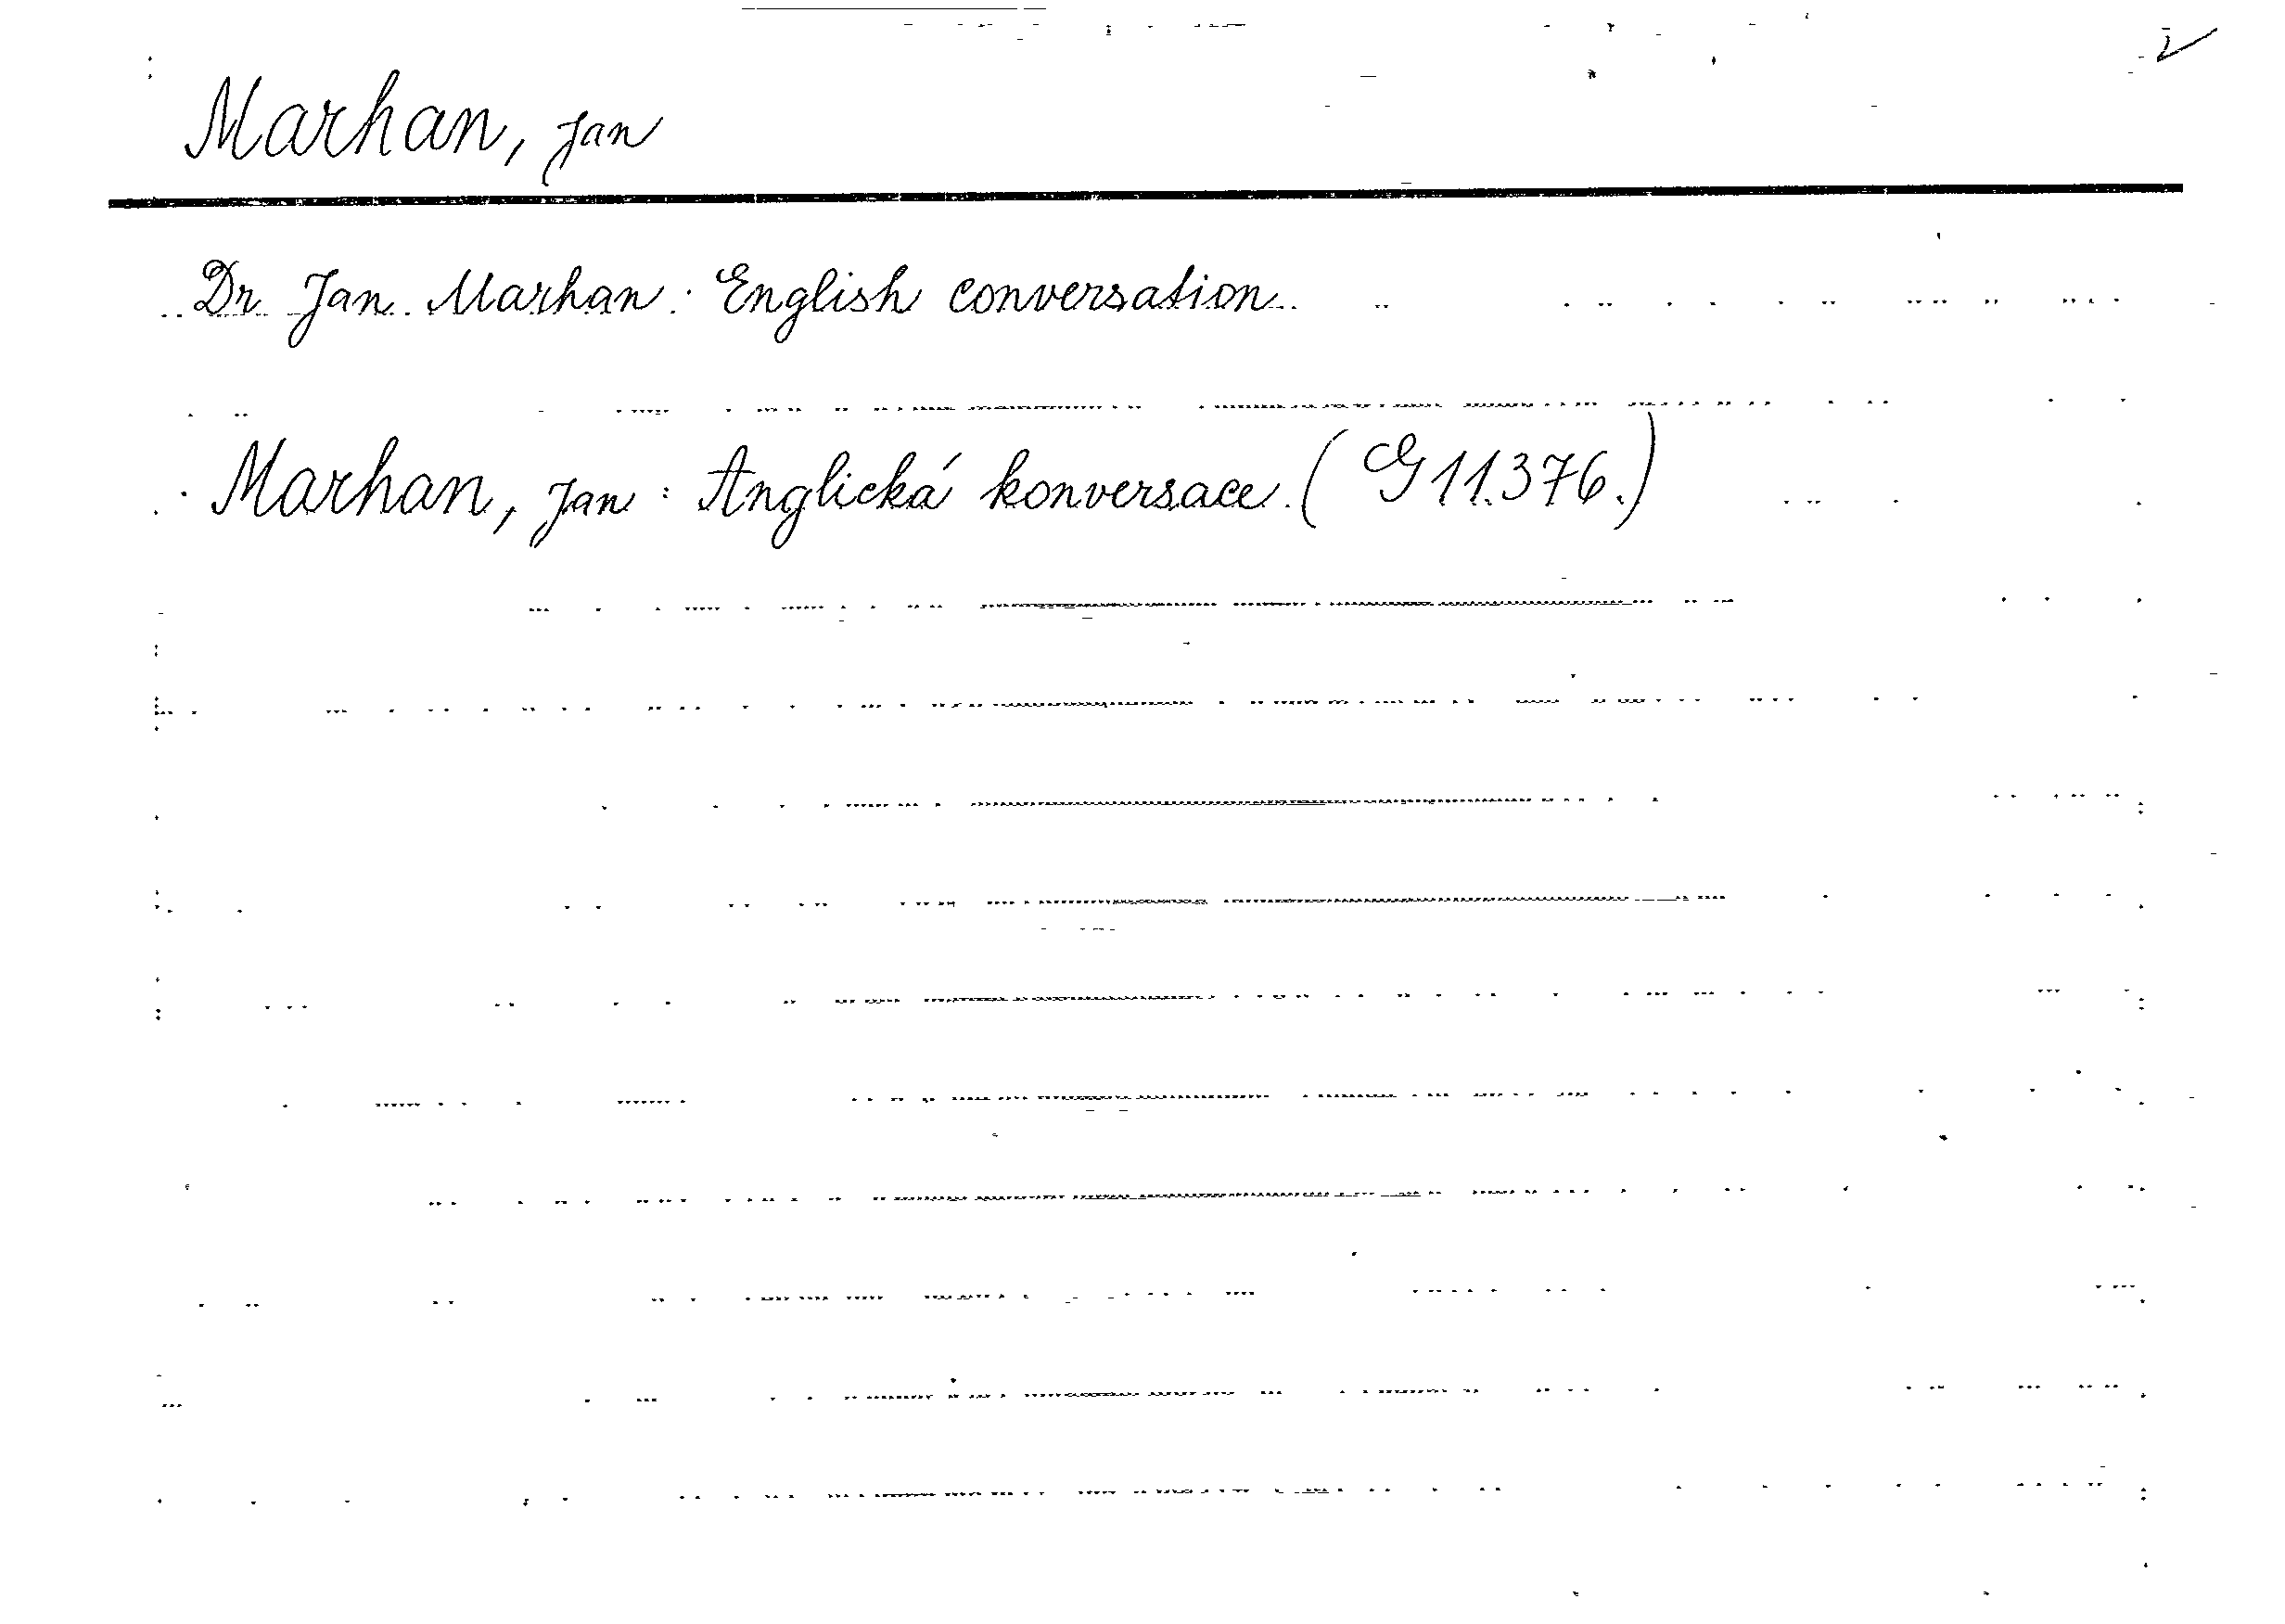 Marhan, Jan
Dr Jan Marhan: English conversation.
Marhan, Jan: Anglická konversace. (G 11.376.)